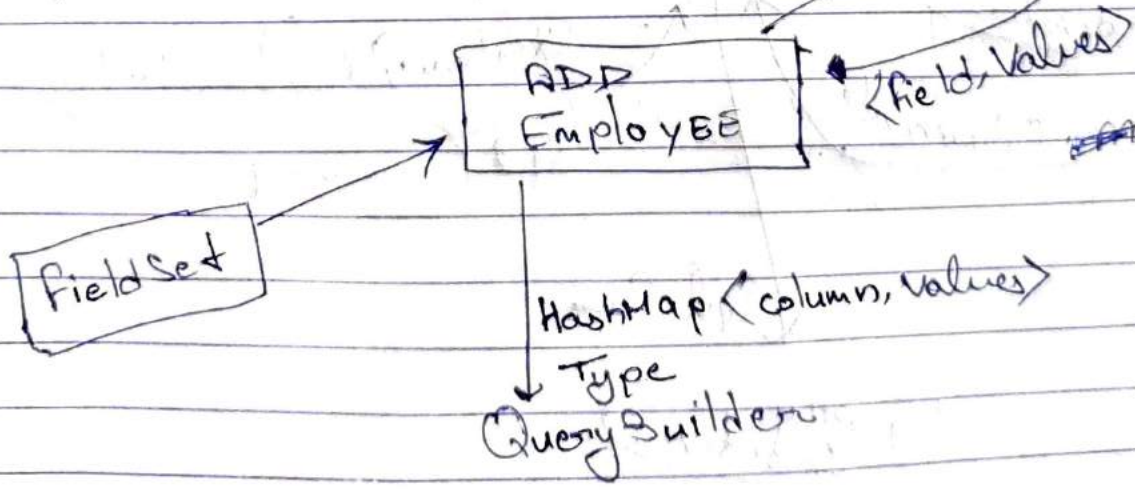 ADD
EmployEE
<field, Values>
fieldSet
HashMap <column, values>
Type
QueryBuilder